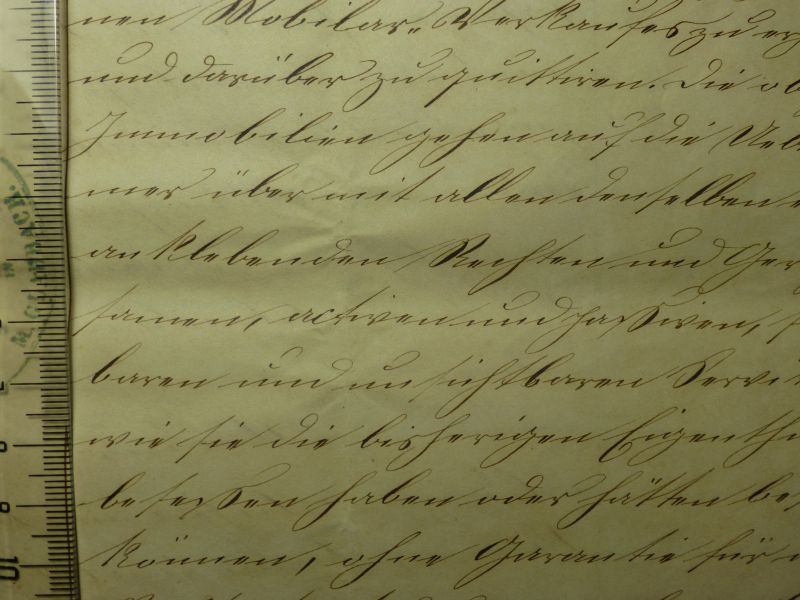 nen Mobilar-Verkaufes zu
und darüber zu quittiren. Die
Immobilien gehen auf die
mer über mit allen denselben
anklebenden Rechten und Ger
samen, activen und passiven,
baren und unsichtbaren Servi
wie sie die bisherigen Eigenth
besessen haben oder hätten be
können, ohne Garantie für
8
9
10